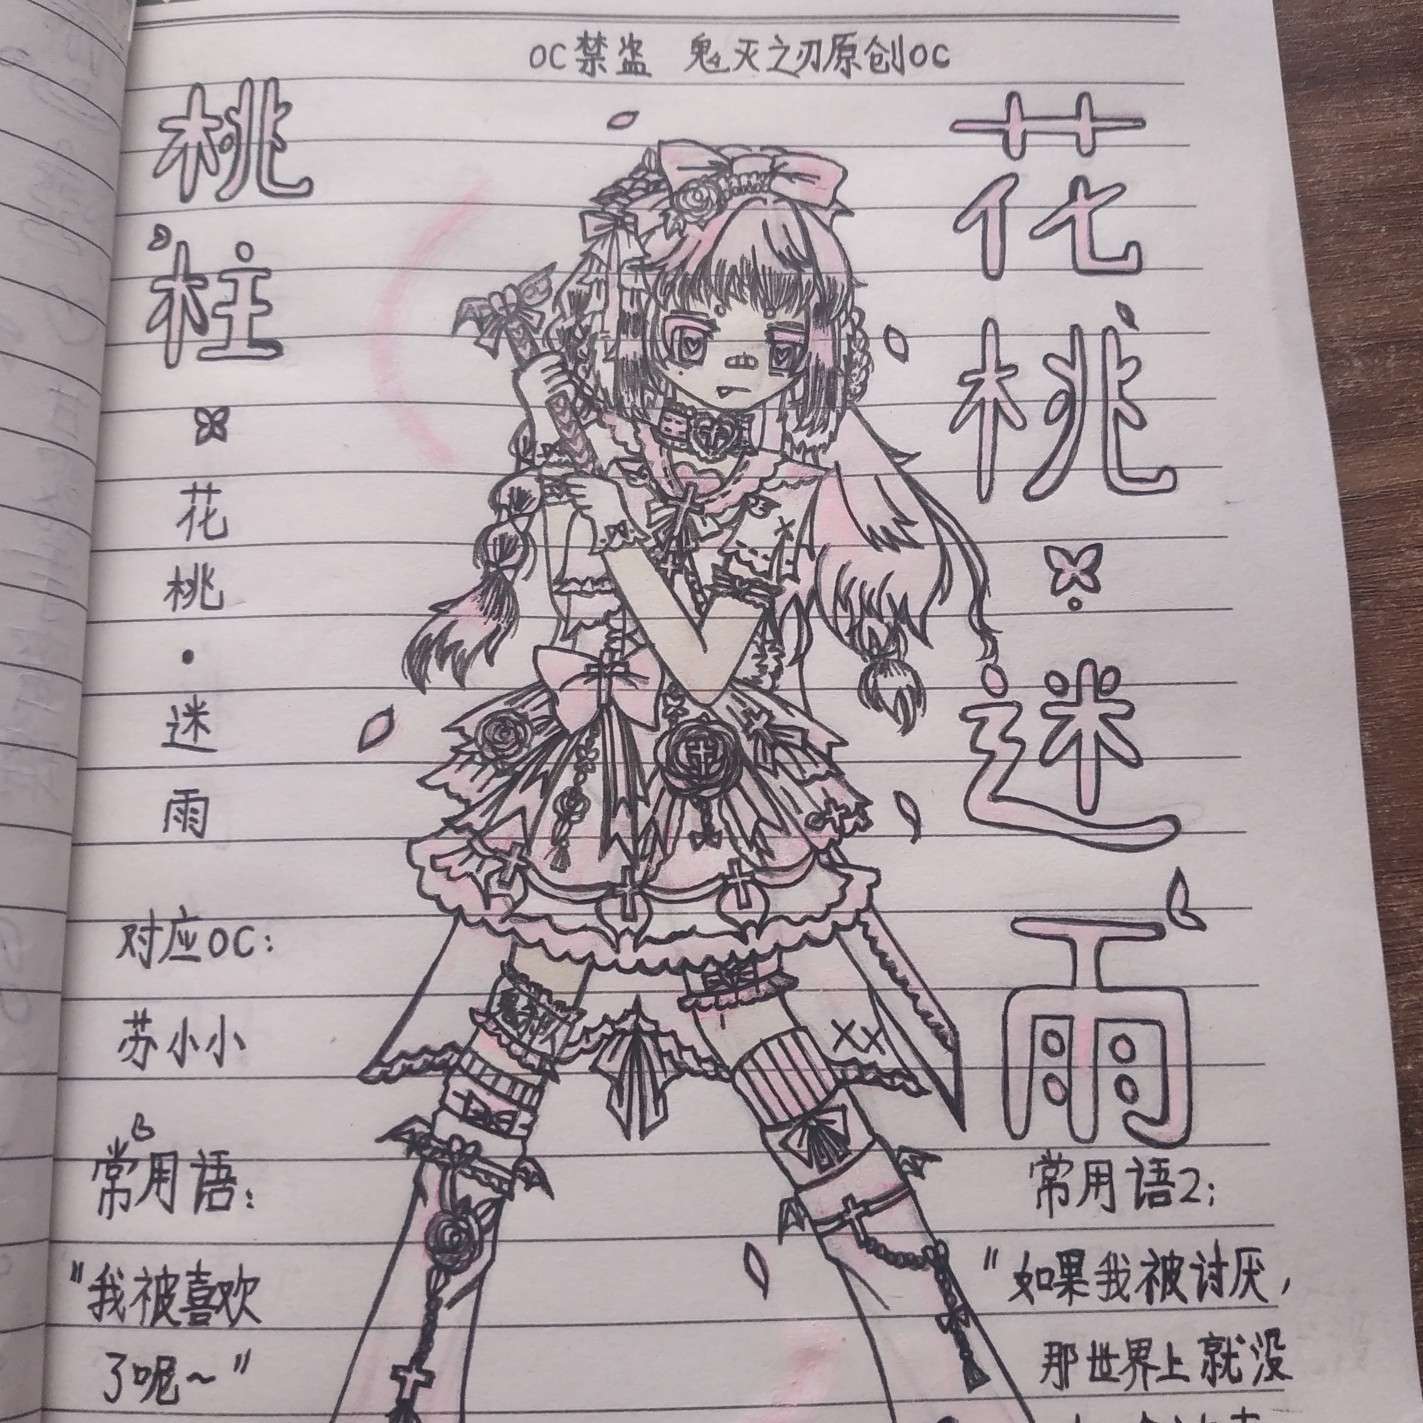 OC禁盗 鬼灭之刃原创OC
桃柱
花桃·迷雨
花桃·迷雨
对应OC：
苏小小
常用语：
"我被喜欢
了呢~"
常用语2：
"如果我被讨厌，
那世界上就没